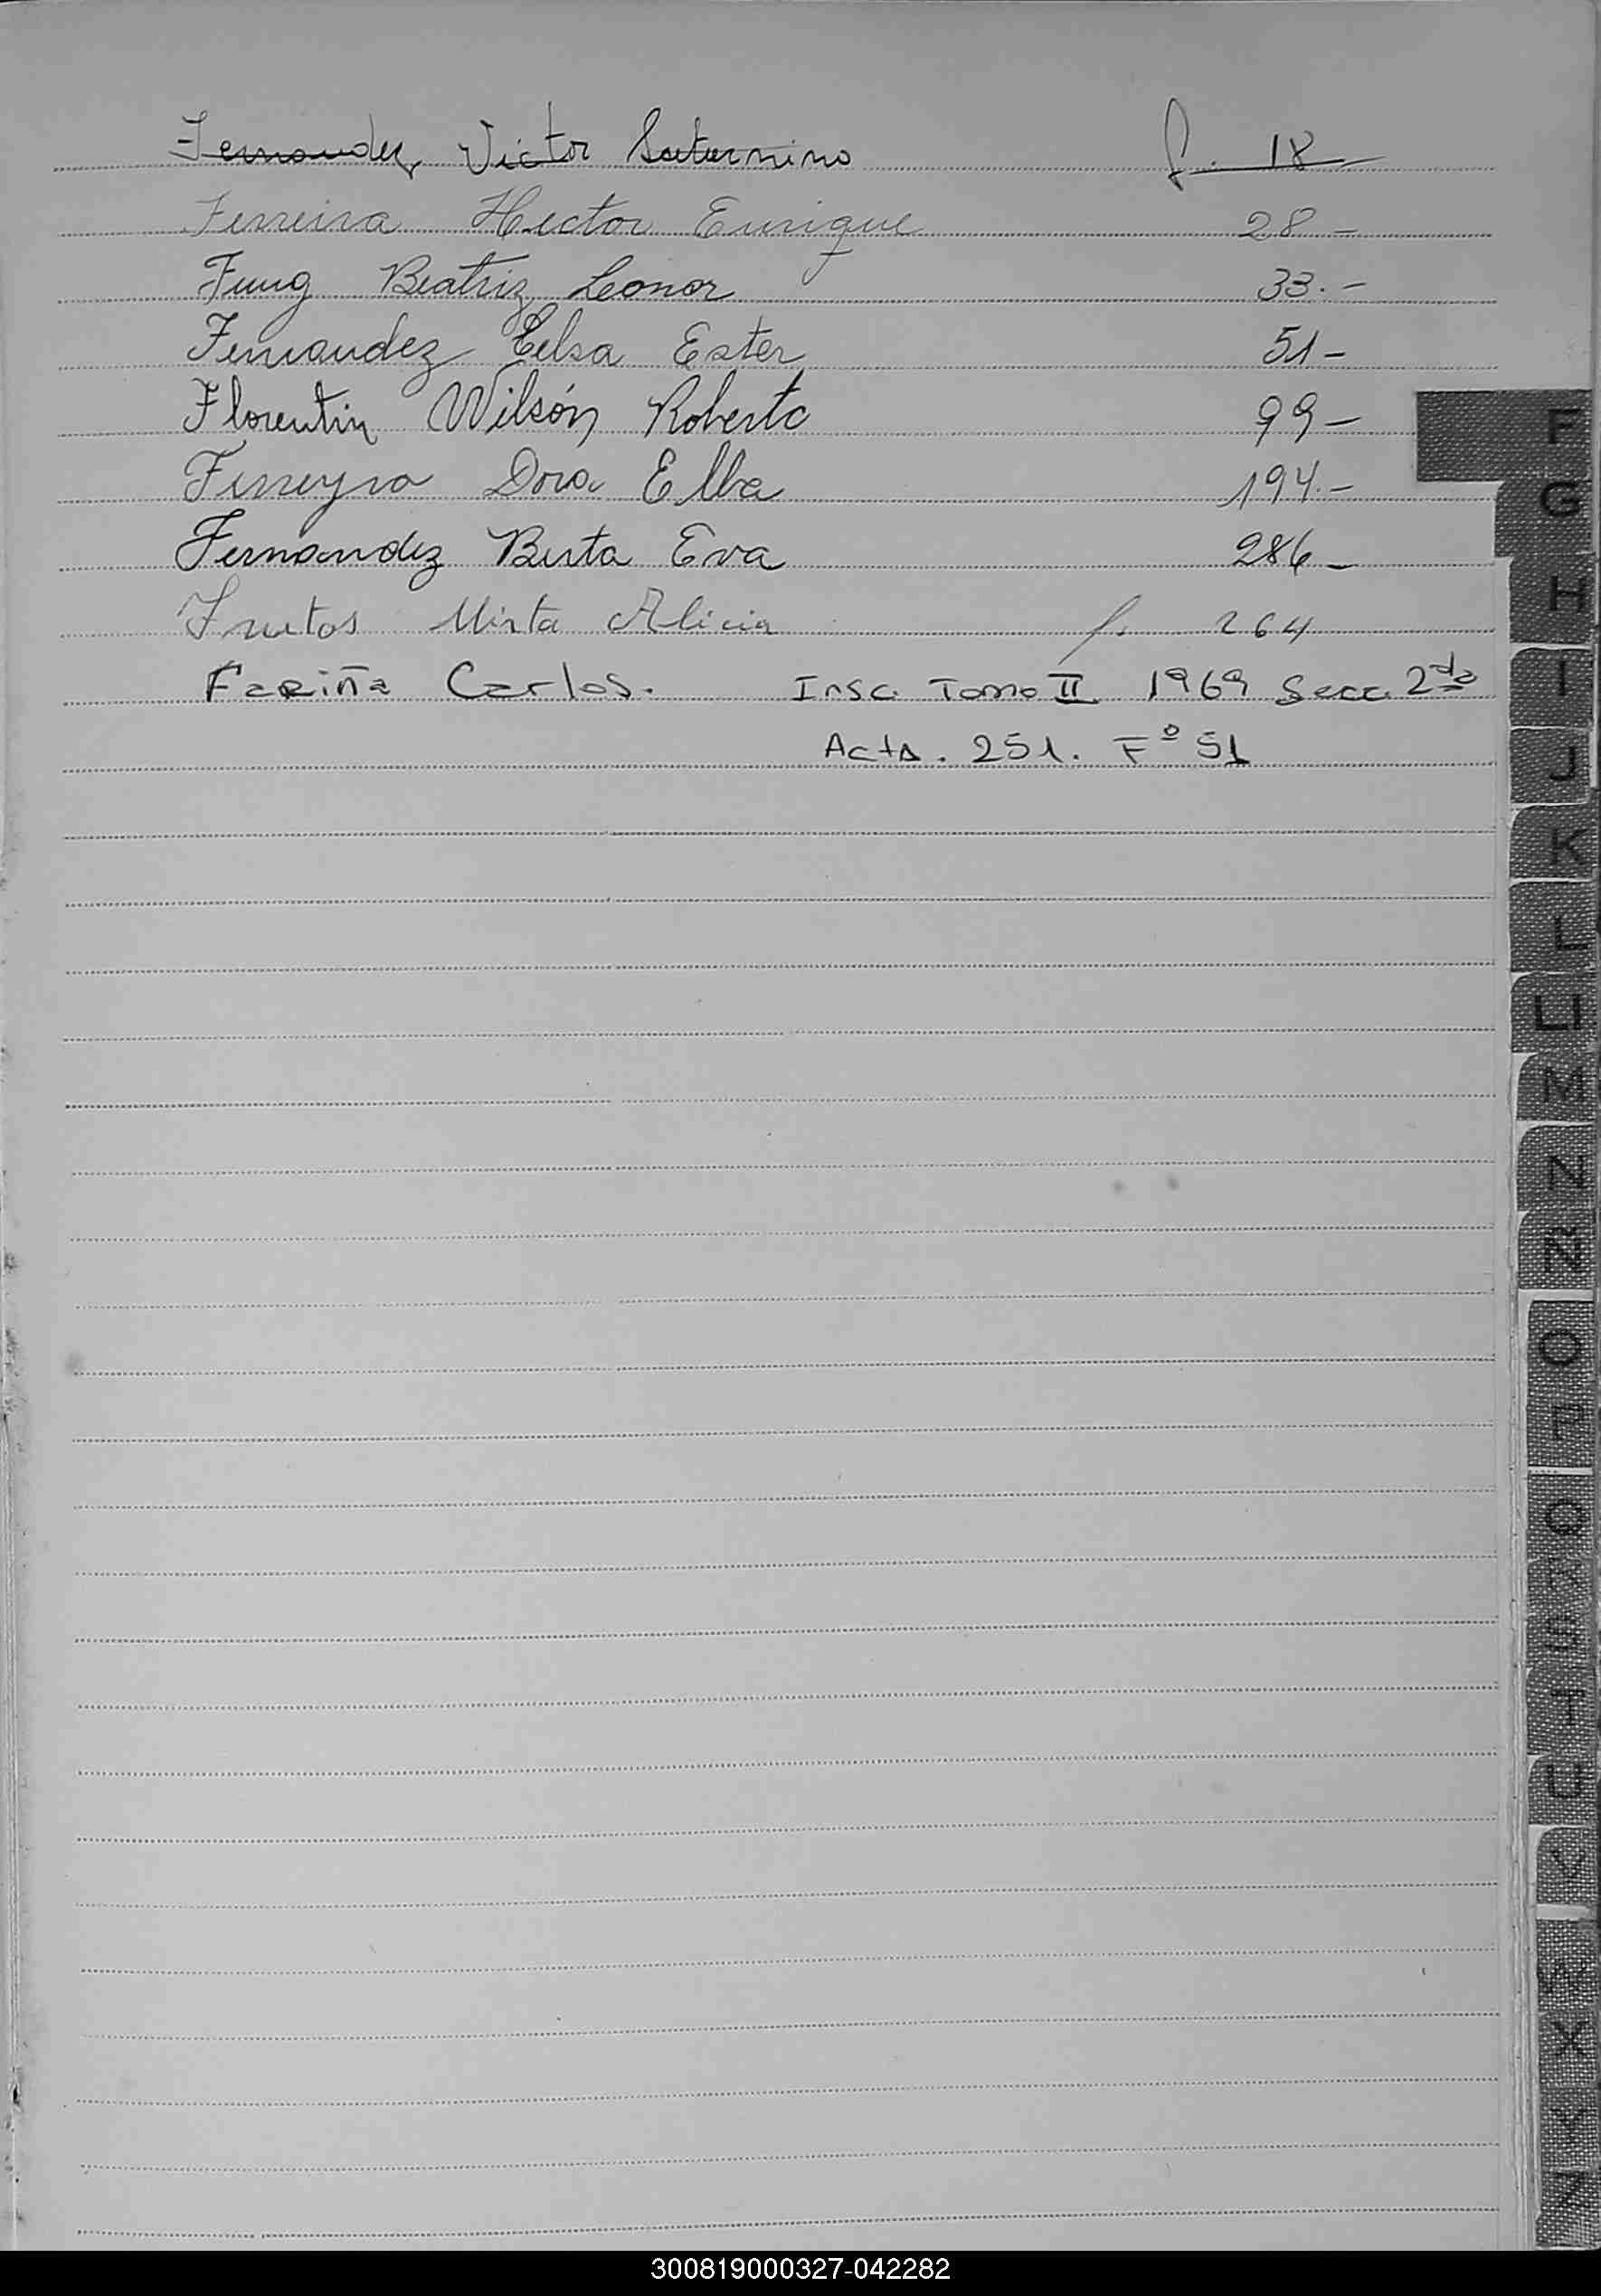 Fernandez Victor Saturnino f. 18-
Ferreira Hector Enrique 28-
Fung Beatriz Leonor 33.-
Fernandez Elsa Ester 51-
Florentin Wilsón Roberto 99-
Ferreyra Dora Elba 194.-
Fernandez Berta Eva 286-
Frutos Mirta Alicia f. 264
Fariña Carlos. Insc. Tomo II 1969 Secc. 2da
Acta. 251. Fº 51
F
G
H
I
J
K
L
LL
M
N
Ñ
O
P
Q
R
S
T
U
V
W
X
Y
Z
300819000327-042282